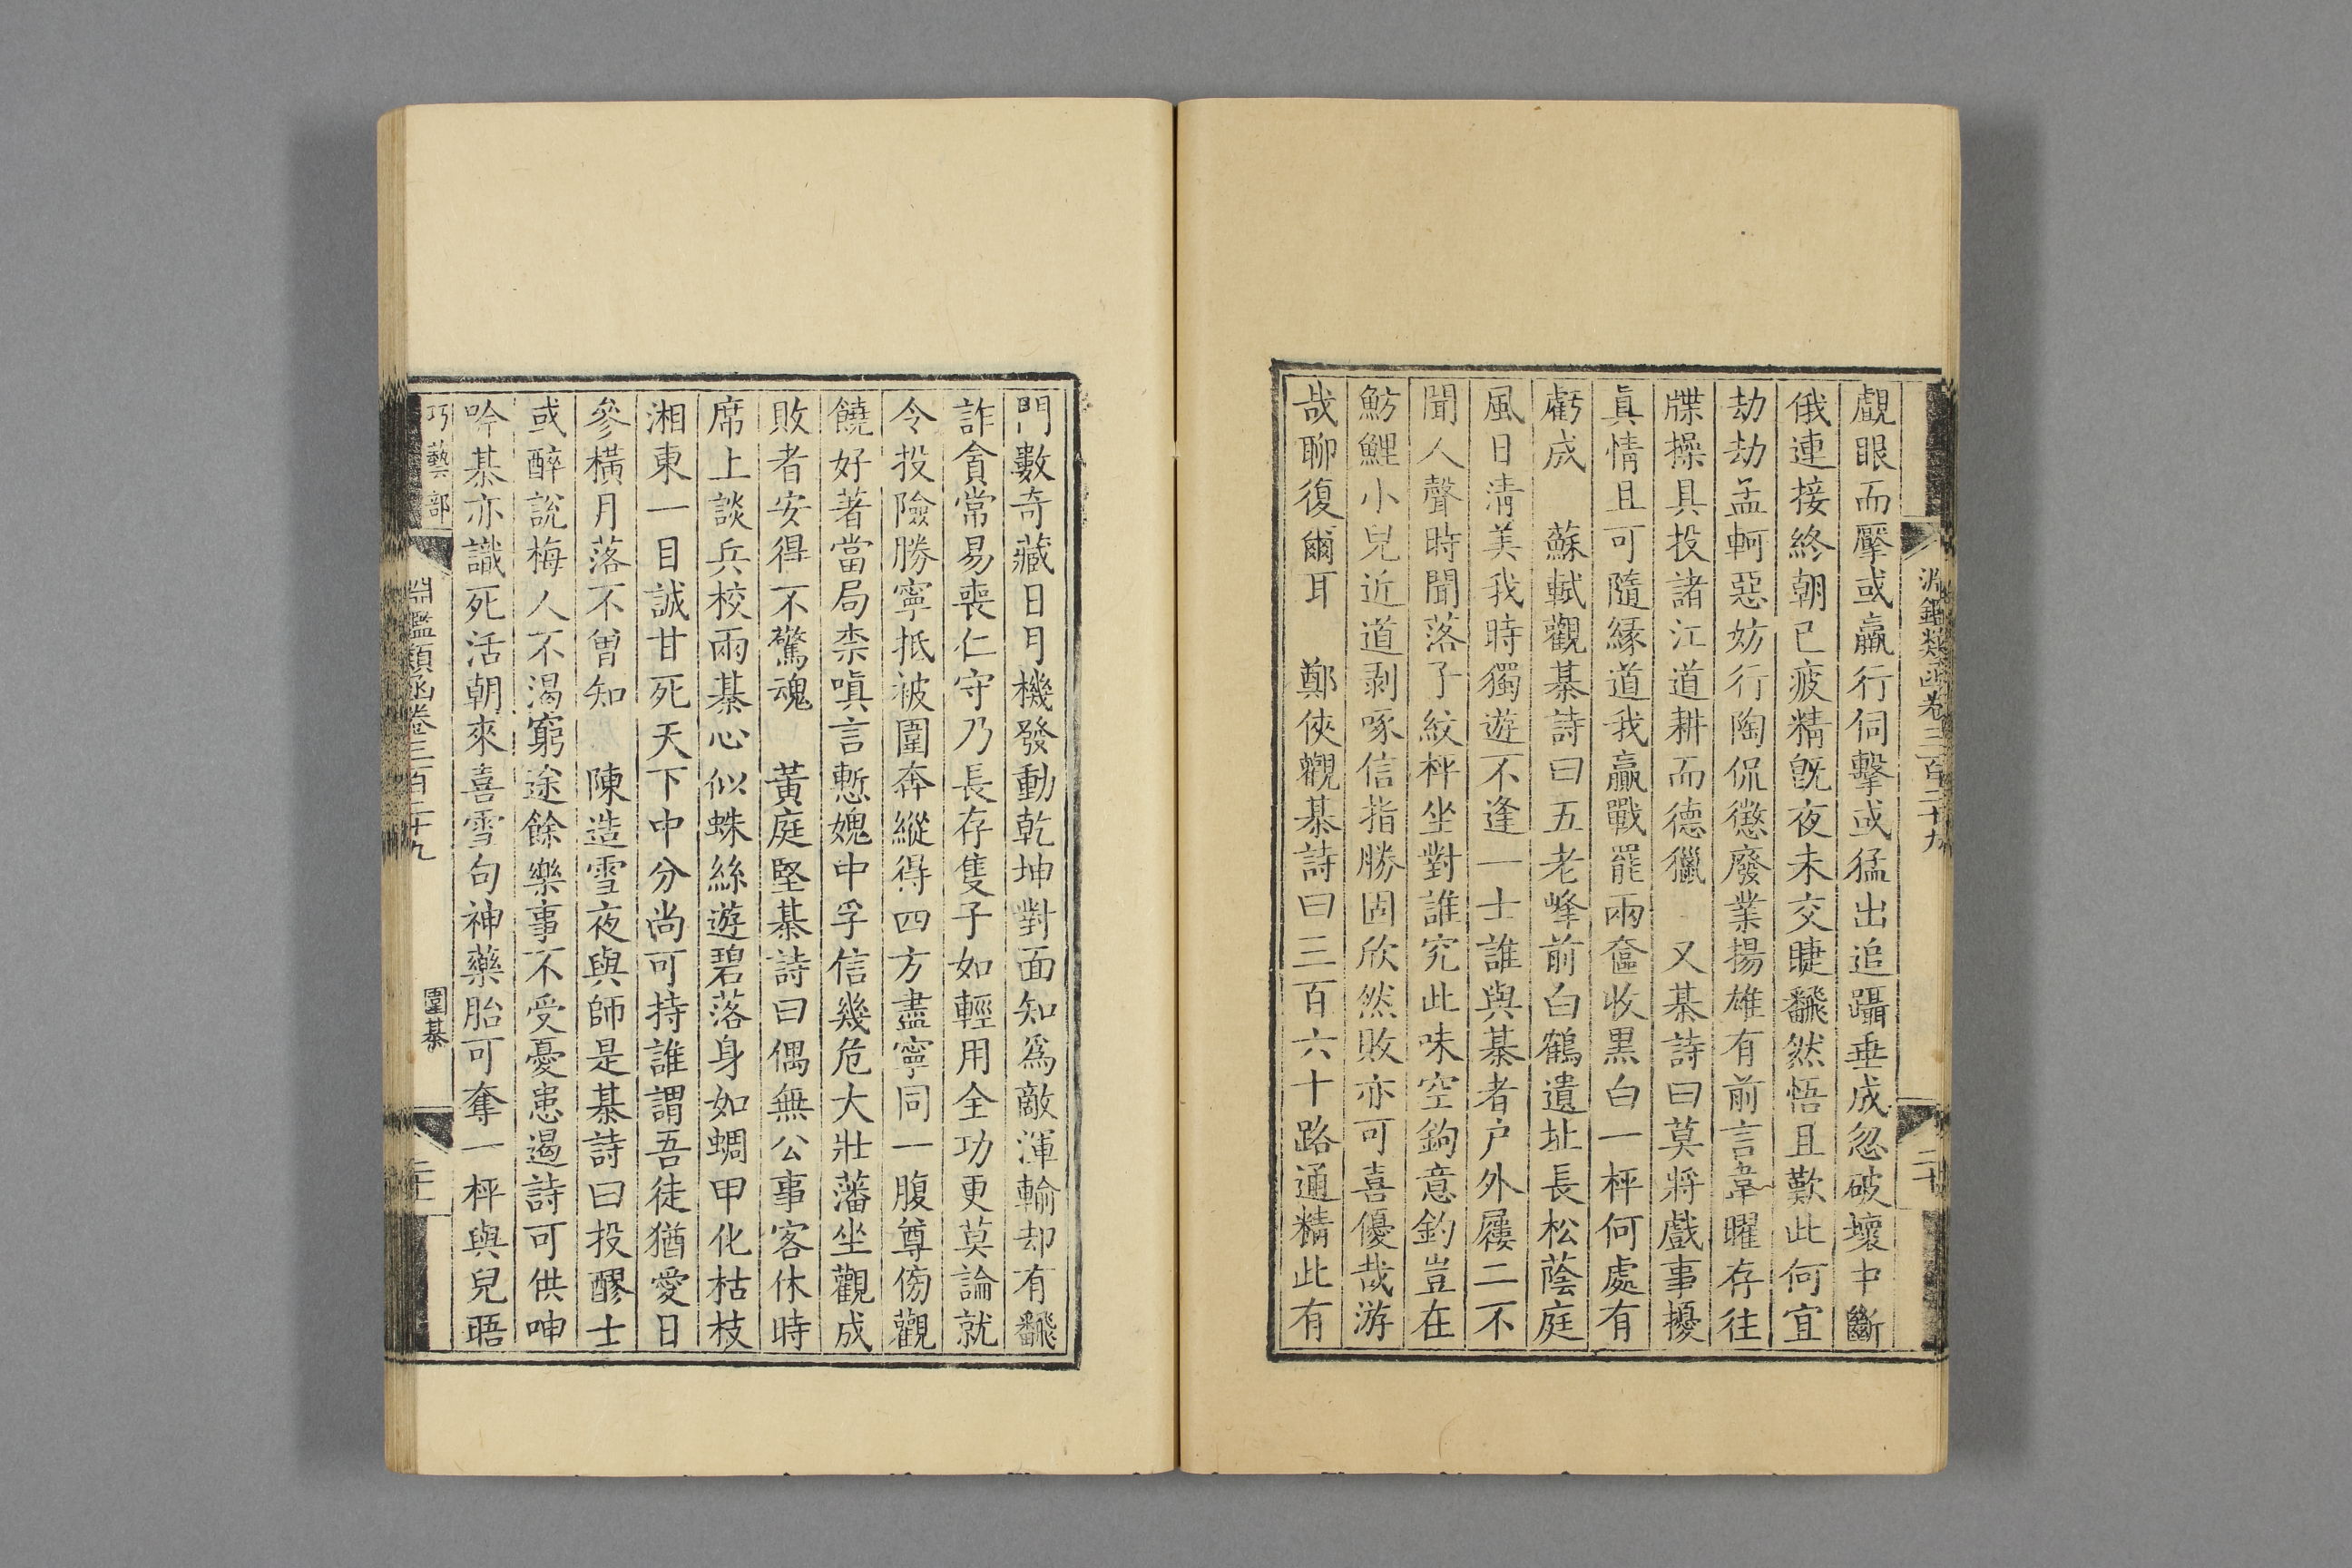 淵鑑類函卷三百二十九
二十
覷眼而壓或羸行伺擊或猛出追躡垂成忽破壞中斷
俄連接終朝已疲精旣夜未交睫飜然悟且歎此何宜
劫劫孟軻惡妨行陶侃懲廢業揚雄有前言韋曜存往
牒操具投諸江道耕而德獵　又棊詩曰莫將戲事擾
眞情且可隨緣道我贏戰罷兩奩收黑白一枰何處有
虧成　蘇軾觀棊詩曰五老峰前白鶴遺址長松蔭庭
風日淸美我時獨遊不逢一士誰與棊者戶外屨二不
聞人聲時聞落子紋枰坐對誰究此味空鉤意釣豈在
魴鯉小兒近道剥啄信指勝固欣然敗亦可喜優哉游
哉聊復爾耳　鄭俠觀棊詩曰三百六十路通精此有
門數奇藏日月機發動乾坤對面知爲敵渾輸却有飜
詐貪常易喪仁守乃長存隻子如輕用全功更莫論就
令投險勝寧抵被圍奔縱得四方盡寧同一腹尊傍觀
饒好著當局柰嗔言慙媿中孚信幾危大壯藩坐觀成
敗者安得不驚魂　黃庭堅棊詩曰偶無公事客休時
席上談兵校兩棊心似蛛絲遊碧落身如蜩甲化枯枝
湘東一目誠甘死天下中分尚可持誰謂吾徒猶愛日
參橫月落不曾知　陳造雪夜與師是棊詩曰投醪士
或醉說梅人不渴窮途餘樂事不受憂患遏詩可供呻
吟棊亦識死活朝來喜雪句神藥胎可奪一枰與兒晤
巧藝部
淵鑑類函卷三百二十九
圍棊